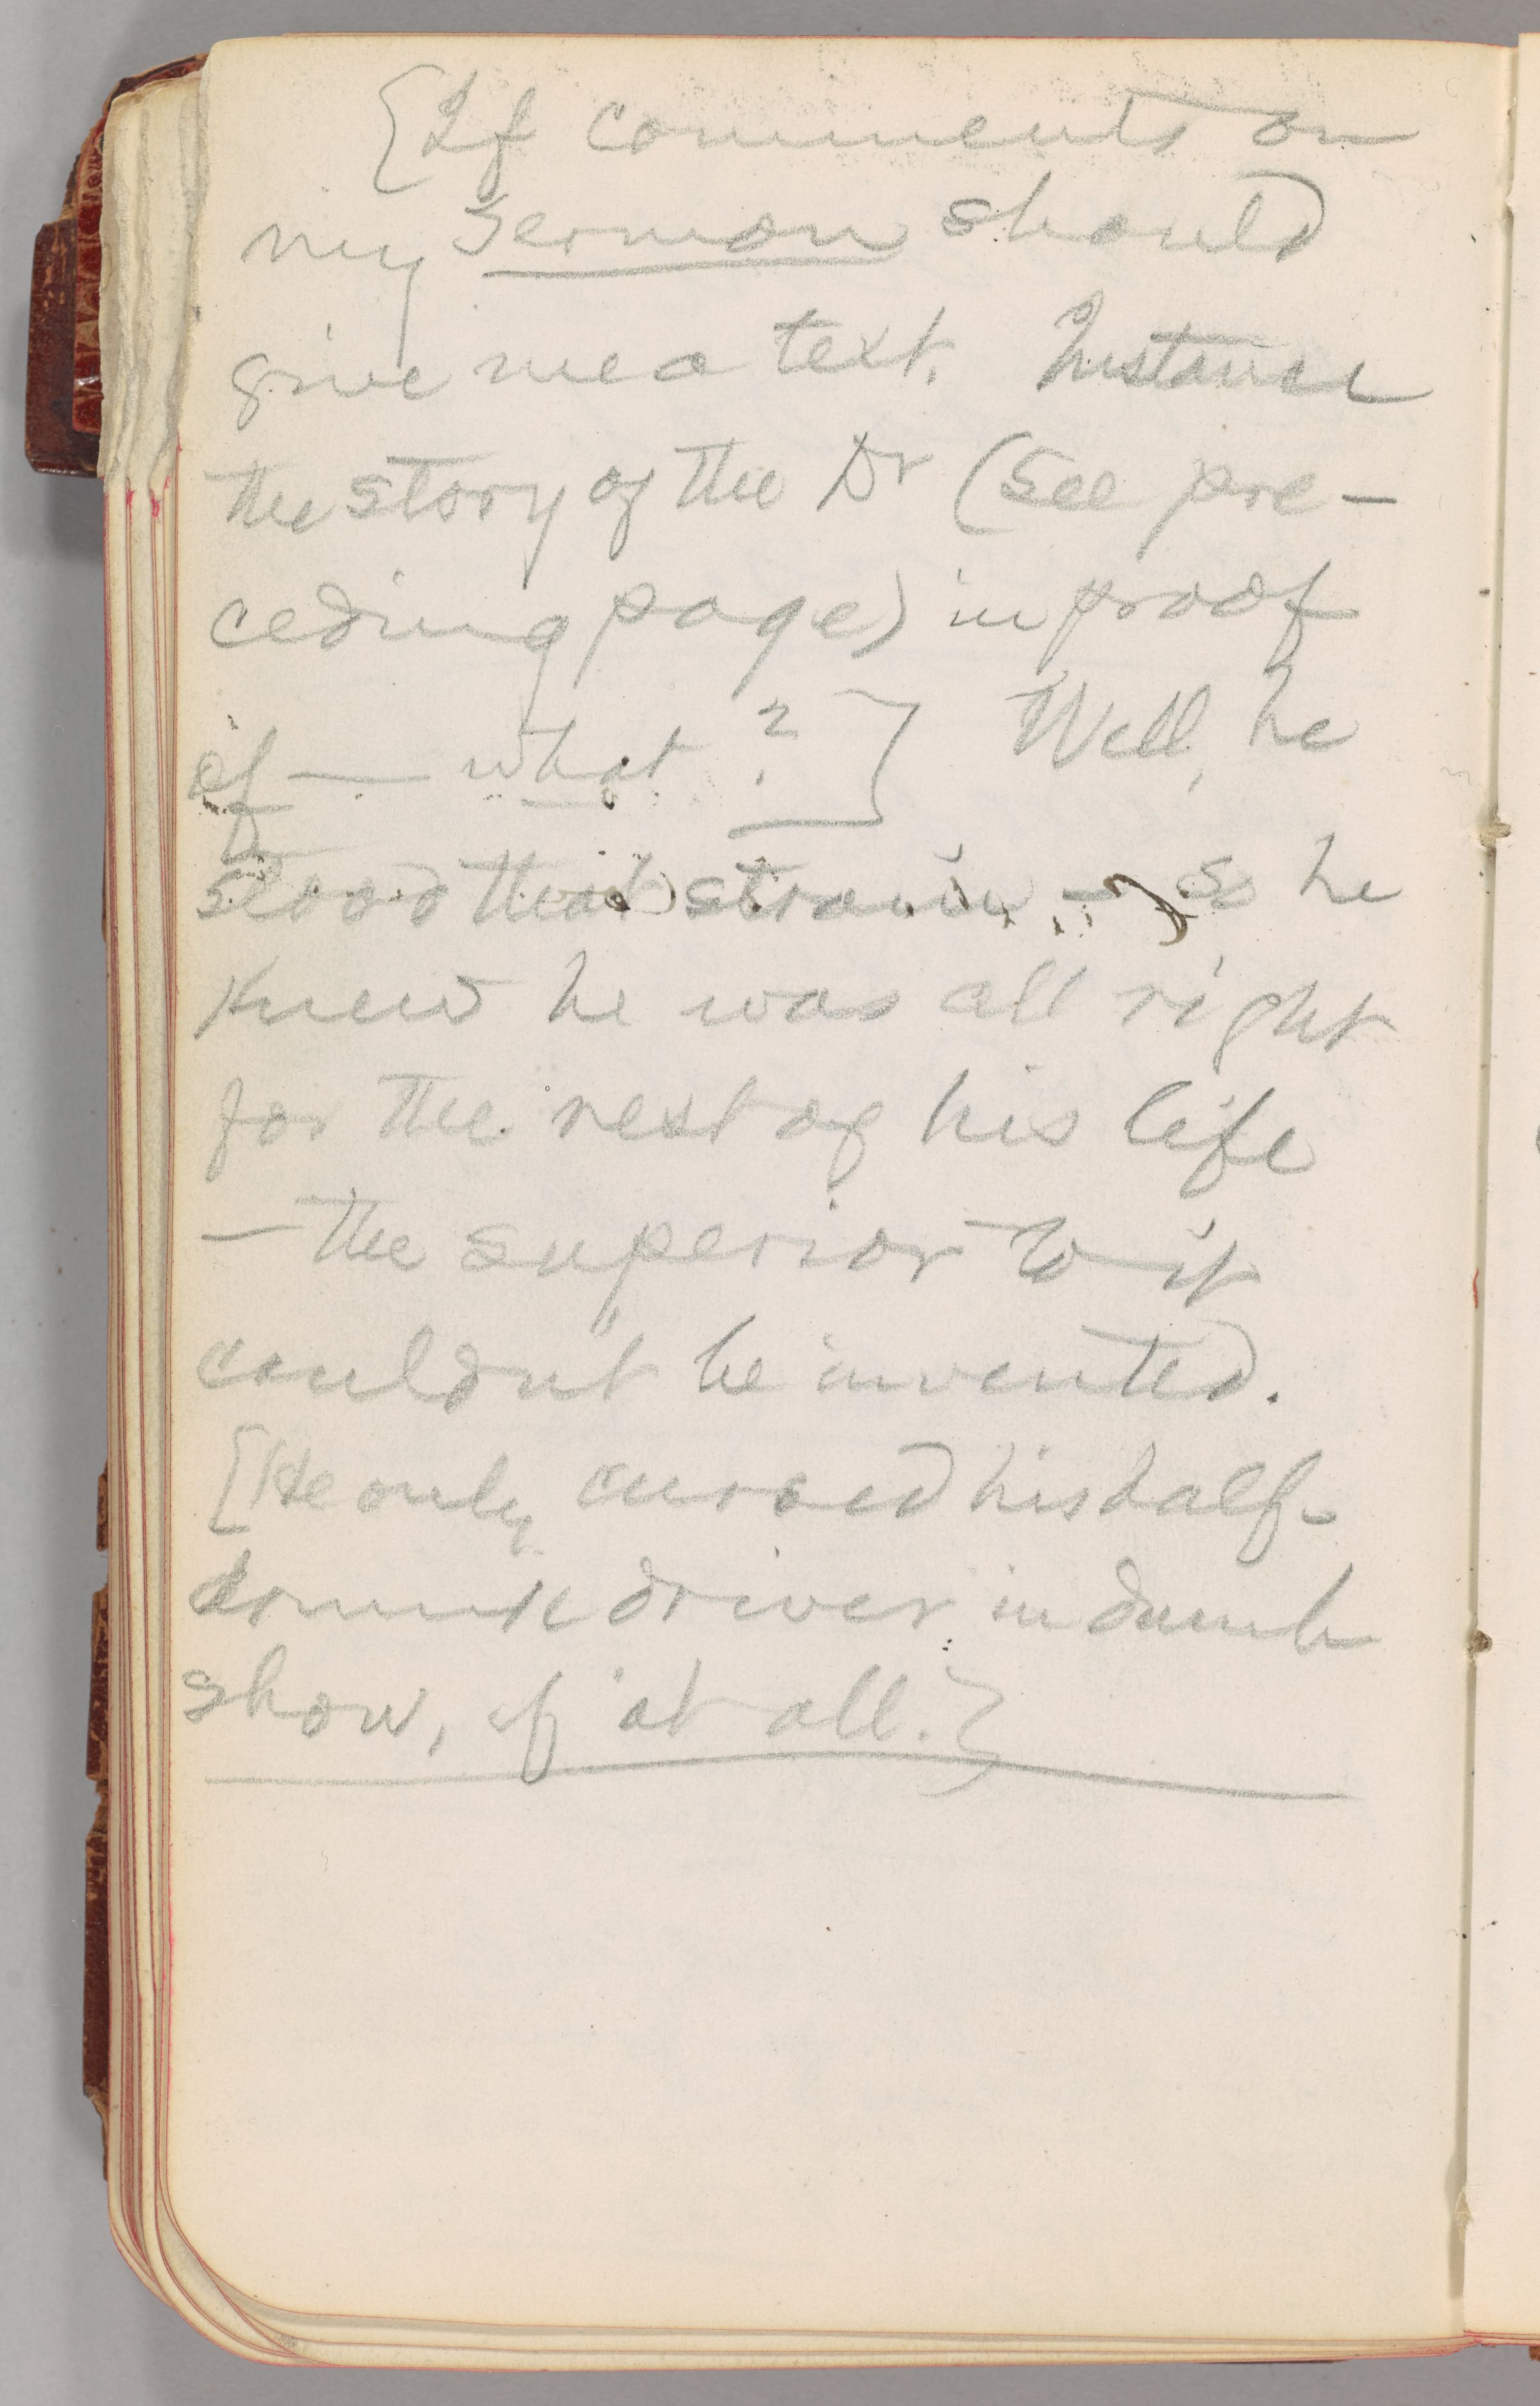 {If comments on
my Sermon should
give me a text. Instance
the story of the Dr (See pre-
ceding page) in proof
of — what?} Well, he
stood that strain — so he
knew he was all right
for the rest of his life
— the superior to it
couldn't be invented.
[He only cursed his half-
drunk driver in dumb
show, if at all.}